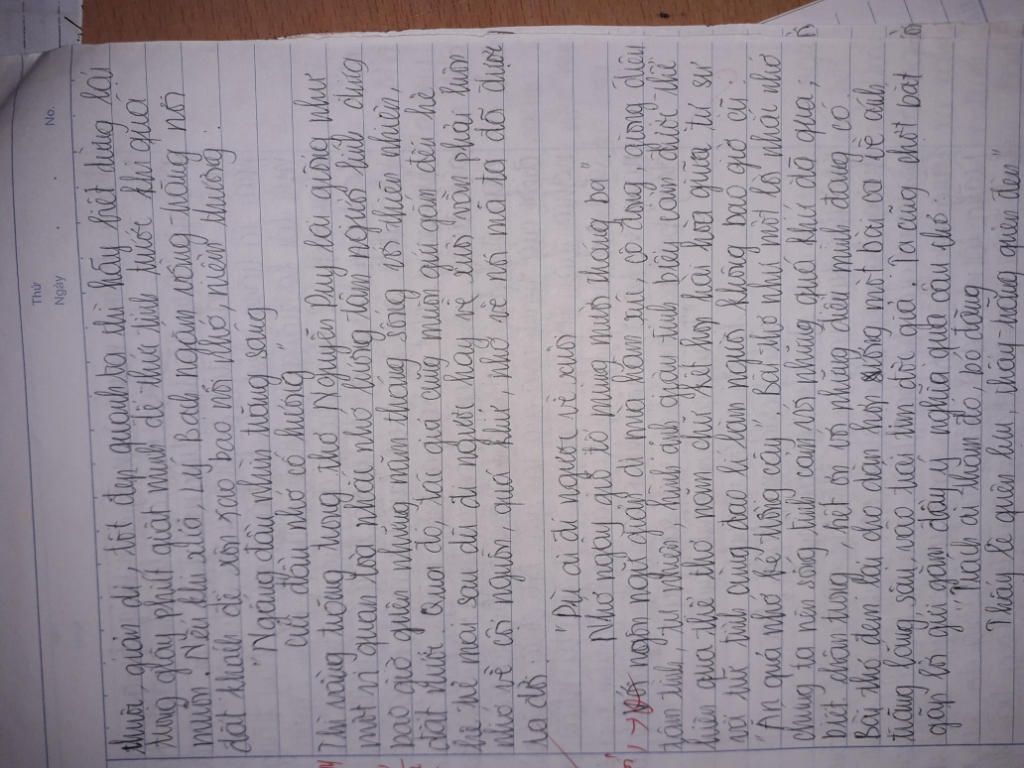 Thứ
Ngày
No.
thuở, giản dị, tốt đẹp quanh ta thì hãy biết dừng lại
từng giây phút giật mình để thức tỉnh trước khi quá
muộn. Nếu thi xưa, Lý Bạch ngắm vầng-trăng nơi
đất khách để xôn xao bao nỗi nhớ, niềm thương
"Ngẩng đầu nhìn trăng sáng
cúi đầu nhớ cố hương"
Thì vầng trăng trong thơ Nguyễn Duy lại giống như
một vị quan tòa nhắc nhở lương tâm người lính đừng
bao giờ quên những năm tháng sống với thiên nhiên,
đất nước. Qua đó, tác giả cũng muốn gửi gắm đến hè
hệ mai sau dù đi ngược hay về xuôi vẫn phải luôn
nhớ về cội nguồn, quá khứ, nhớ về nơi mà ta đã được
ra đời.
"Dù ai đi ngược về xuôi
Nhớ ngày giỗ tổ mùng mười tháng ba"
ngôn ngữ giản dị mà hàm súc, cô đọng, giọng điệu
tâm tình, tự nhiên, hình ảnh giàu tính biểu cảm được thể
hiện qua thể thơ năm chữ kết hợp hài hòa giữa tự sự
với trữ tình cùng đạo lí làm người không bao giờ cũ
"Ăn quả nhớ kẻ trồng cây". Bài thơ như một lời nhắc nhở
chúng ta nên sống tình cảm với những quá khứ đã qua,
biết trân trọng, biết ơn với những điều mình đang có.
Bài thơ đem lại cho dân hồn sống một bài ca về ánh
trăng lắng sâu vào trái tim độc giả. Ta cũng chợt bắt
gặp lời gửi ngắm đầy ý nghĩa qua câu thơ
"Trách ai tham đó, bỏ đăng
Thấy lê quên lựu, thấy-trăng quên đèn"